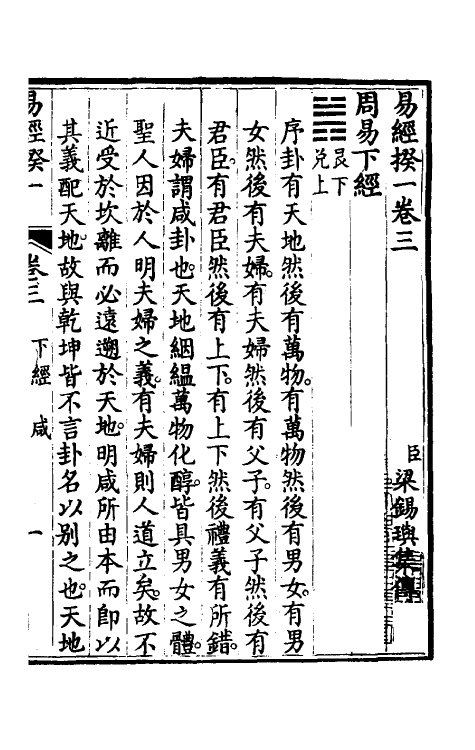 易經揆一卷三
臣梁錫璵集傳
周易下經
艮下
兌上
序卦有天地然後有萬物。有萬物然後有男女。有男
女然後有夫婦。有夫婦然後有父子。有父子然後有
君臣。有君臣然後有上下。有上下然後禮義有所錯。
夫婦謂咸卦也。天地絪縕萬物化醇。皆具男女之體。
聖人因於人明夫婦之義。有夫婦則人道立矣。故不
近受於坎離而必遠遡於天地。明咸所由本而即以
其義配天地。故與乾坤皆不言卦名以別之也。天地
易經揆一
卷三
下經
咸
一